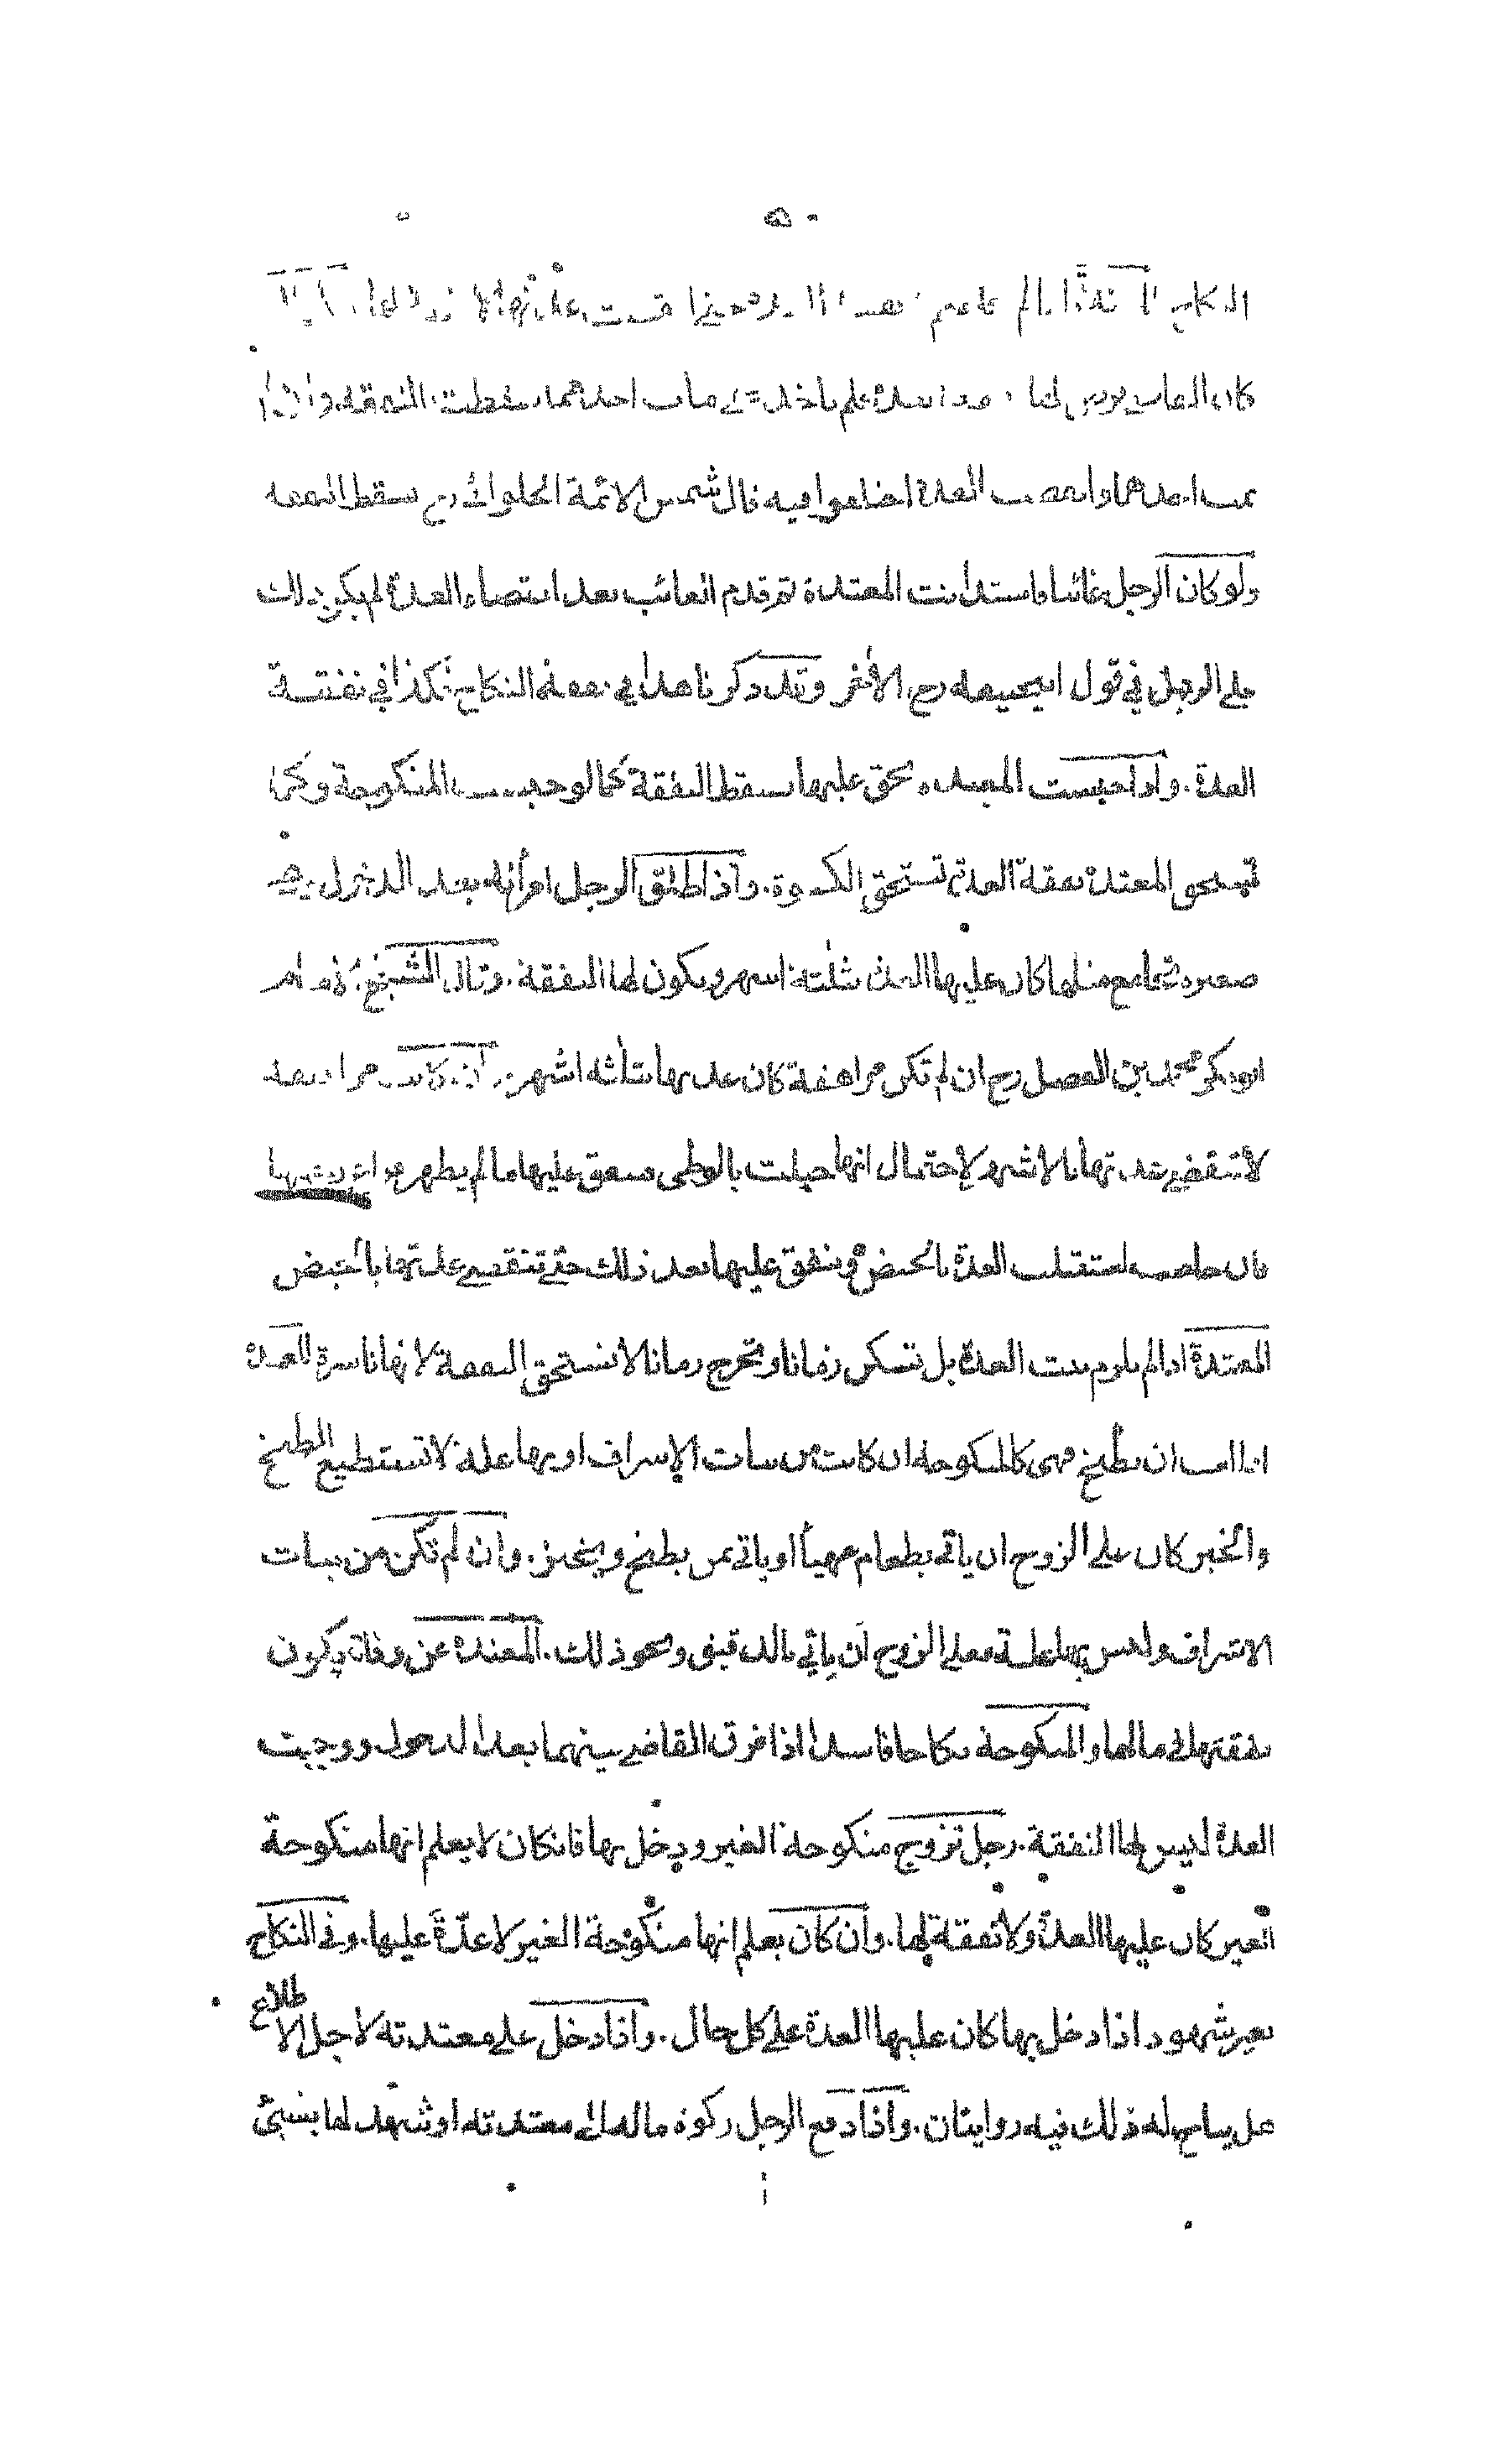 ٥٠
كان القاضى فرض لها فى العدة فلم تأخذ حتى مات احدهما سقطت النفقة وان لم
يمت احدهما وانقضت العدة اختلفوا فيه قال شمس الائمة الحلوائى رح سقط النفقة
ولو كان الرجل غائبا فاستدانت المعتدة ثم قدم الغائب بعد انقضاء العدة لم يكن ذلك
على الرجل فى قول ابيحنيفة رح الأخر وقد ذكرنا هذا فى نفقة النكاح فكذا فى نفقة
العدة. واذا حبست المعتدة بحق عليها سقط النفقة كما لو حبست المنكوحة وكما
تستحق المعتدة نفقة العدة تستحق الكسوة. واذا طلق الرجل امرأته بعد الدخول وهى
صغيرة تجامع مثلها كان عليها العدة ثلثة اشهر ويكون لها النفقة. وقال الشيخ الامام
ابو بكر محمد بن الفضل رح ان لم تكن مراهقة كان عدتها ثلثة اشهر وان كانت مراهقة
لا تنقضى عدتها بالاشهر لاحتمال انها حبلت بالوطى فينفق عليها ما لم يظهر فراغ رحمها
فان حاضت استقبلت العدة بالحيض وينفق عليها بعد ذلك حتى تنقضى عدتها بالحيض
المعتدة اذا لم تلزم بيت العدة بل تسكن زمانا وتخرج زمانا لا تستحق النفقة لانها ناشزة المعتدة
اذا ابت ان تطبخ فهى كالمنكوحة ان كانت من بنات الاشراف او بها علة لا تستطيع الطبخ
والخبز كان على الزوج ان يأتى بطعام مهيأ او يأتى بمن يطبخ ويخبز. وان لم تكن من بنات
الاشراف وليس بها علة فعلى الزوج ان يأتى بالدقيق ونحو ذلك. المعتدة عن وفات يكون
نفقتها فى مالها والمنكوحة نكاحا فاسدا اذا فرق القاضى بينهما بعد الدخول ووجبت
العدة ليس لها النفقة. رجل تزوج منكوحة الغير ودخل بها فان كان لا يعلم انها منكوحة
الغير كان عليها العدة ولا نفقة لها. وان كان يعلم انها منكوحة الغير لا عدة عليها. وفى النكاح
بغير شهود اذا دخل بها كان عليها العدة على كل حال. واذا دخل على معتدته لاجل الاطلاع
هل يباح له ذلك فيه روايتان. واذا دفع الرجل زكوة ماله الى معتدته او شهد لها بشئ